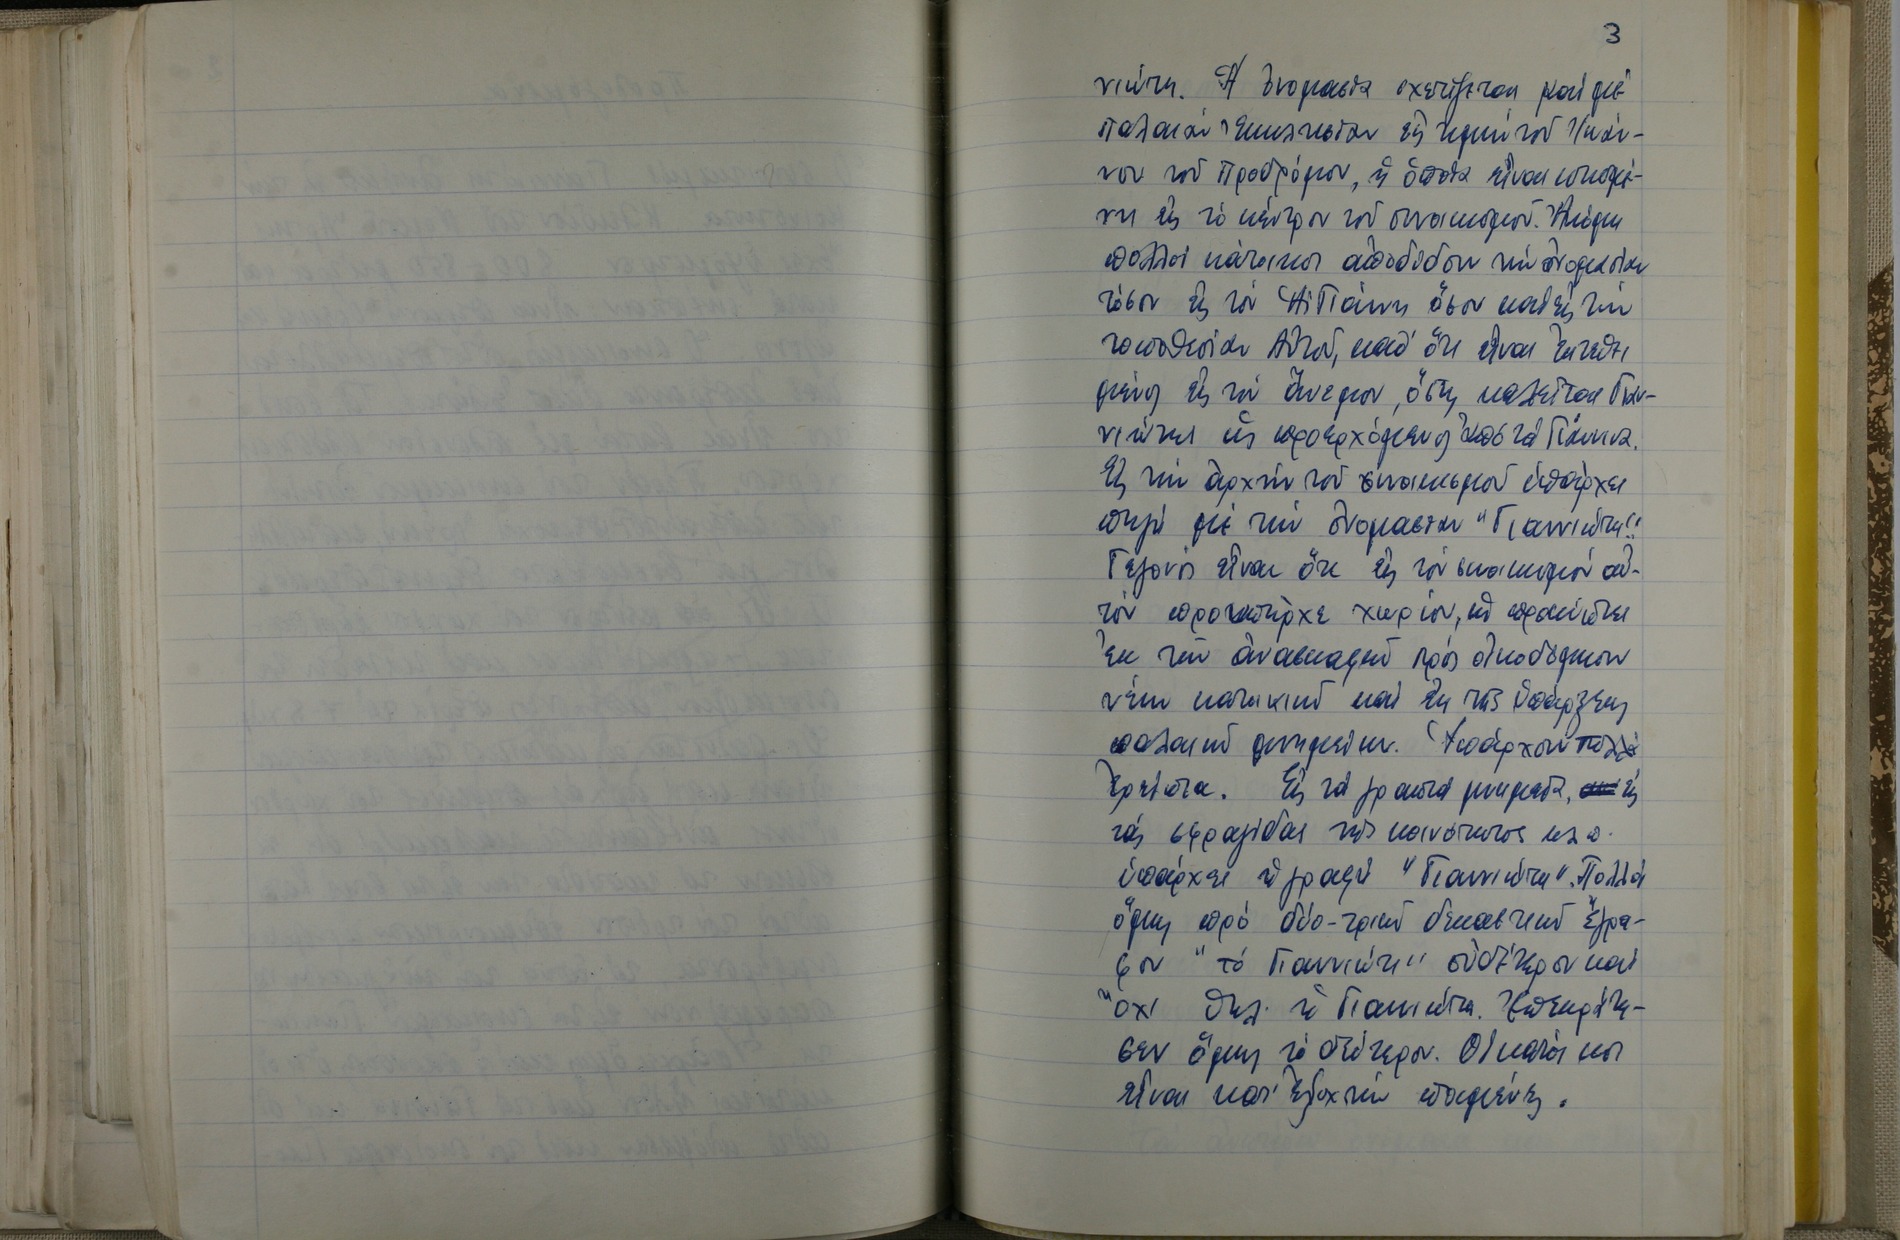 3
νιώτη. Ἡ ὀνομασία σχετίζεται καί μέ
παλαιάν Ἐκκλησίαν εἰς τιμήν τοῦ Ἰωάν-
νου τοῦ Προδρόμου, ἡ ὁποία εἶναι κτισμέ-
νη εἰς τό κέντρον τοῦ συνοικισμοῦ. Ἀκόμη
πολλοί κάτοικοι ἀποδίδουν τήν ὀνομασίαν
τόσον εἰς τόν Ἁϊ Γιάννη ὅσον καί εἰς τήν
τοποθεσίαν Αὐτοῦ, καθ' ὅτι εἶναι ἐκτεθει
μένος εἰς τόν ἄνεμον, ὅστις καλεῖται Γιαν-
νιώτης ὡς προερχόμενος ἀπό τά Γιάννινα.
Εἰς τήν ἀρχήν τοῦ συνοικισμοῦ ὑπάρχει
πηγή μέ τήν ὀνομασίαν "Γιαννιώτη".
Γεγονός εἶναι ὅτι εἰς τόν συνοικισμόν αὐ-
τόν προϋπῆρχε χωρίον, ὡς προκύπτει
ἐκ τῶν ἀνασκαφῶν πρός οἰκοδόμησιν
νέων κατοικιῶν καί ἐκ τῆς ὑπάρξεως
παλαιῶν μνημείων. Ὑπάρχουν πολλά
ἐρείπια. Εἰς τά γραπτά μνημεῖα, εἰς
τάς σφραγίδας τῆς κοινότητος κλπ.
ὑπάρχει ἡ γραφή "Γιαννιώτη". Πολλοί
ὅμως πρό δύο-τριῶν δεκαετιῶν ἔγρα-
φον "τό Γιαννιώτι" οὐδέτερον καί
ὄχι θηλ. ἡ Γιαννιώτη. Ἐπεκράτη-
σεν ὅμως τό δεύτερον. Οἱ κάτοικοι
εἶναι κατ' ἐξοχήν ποιμένες.